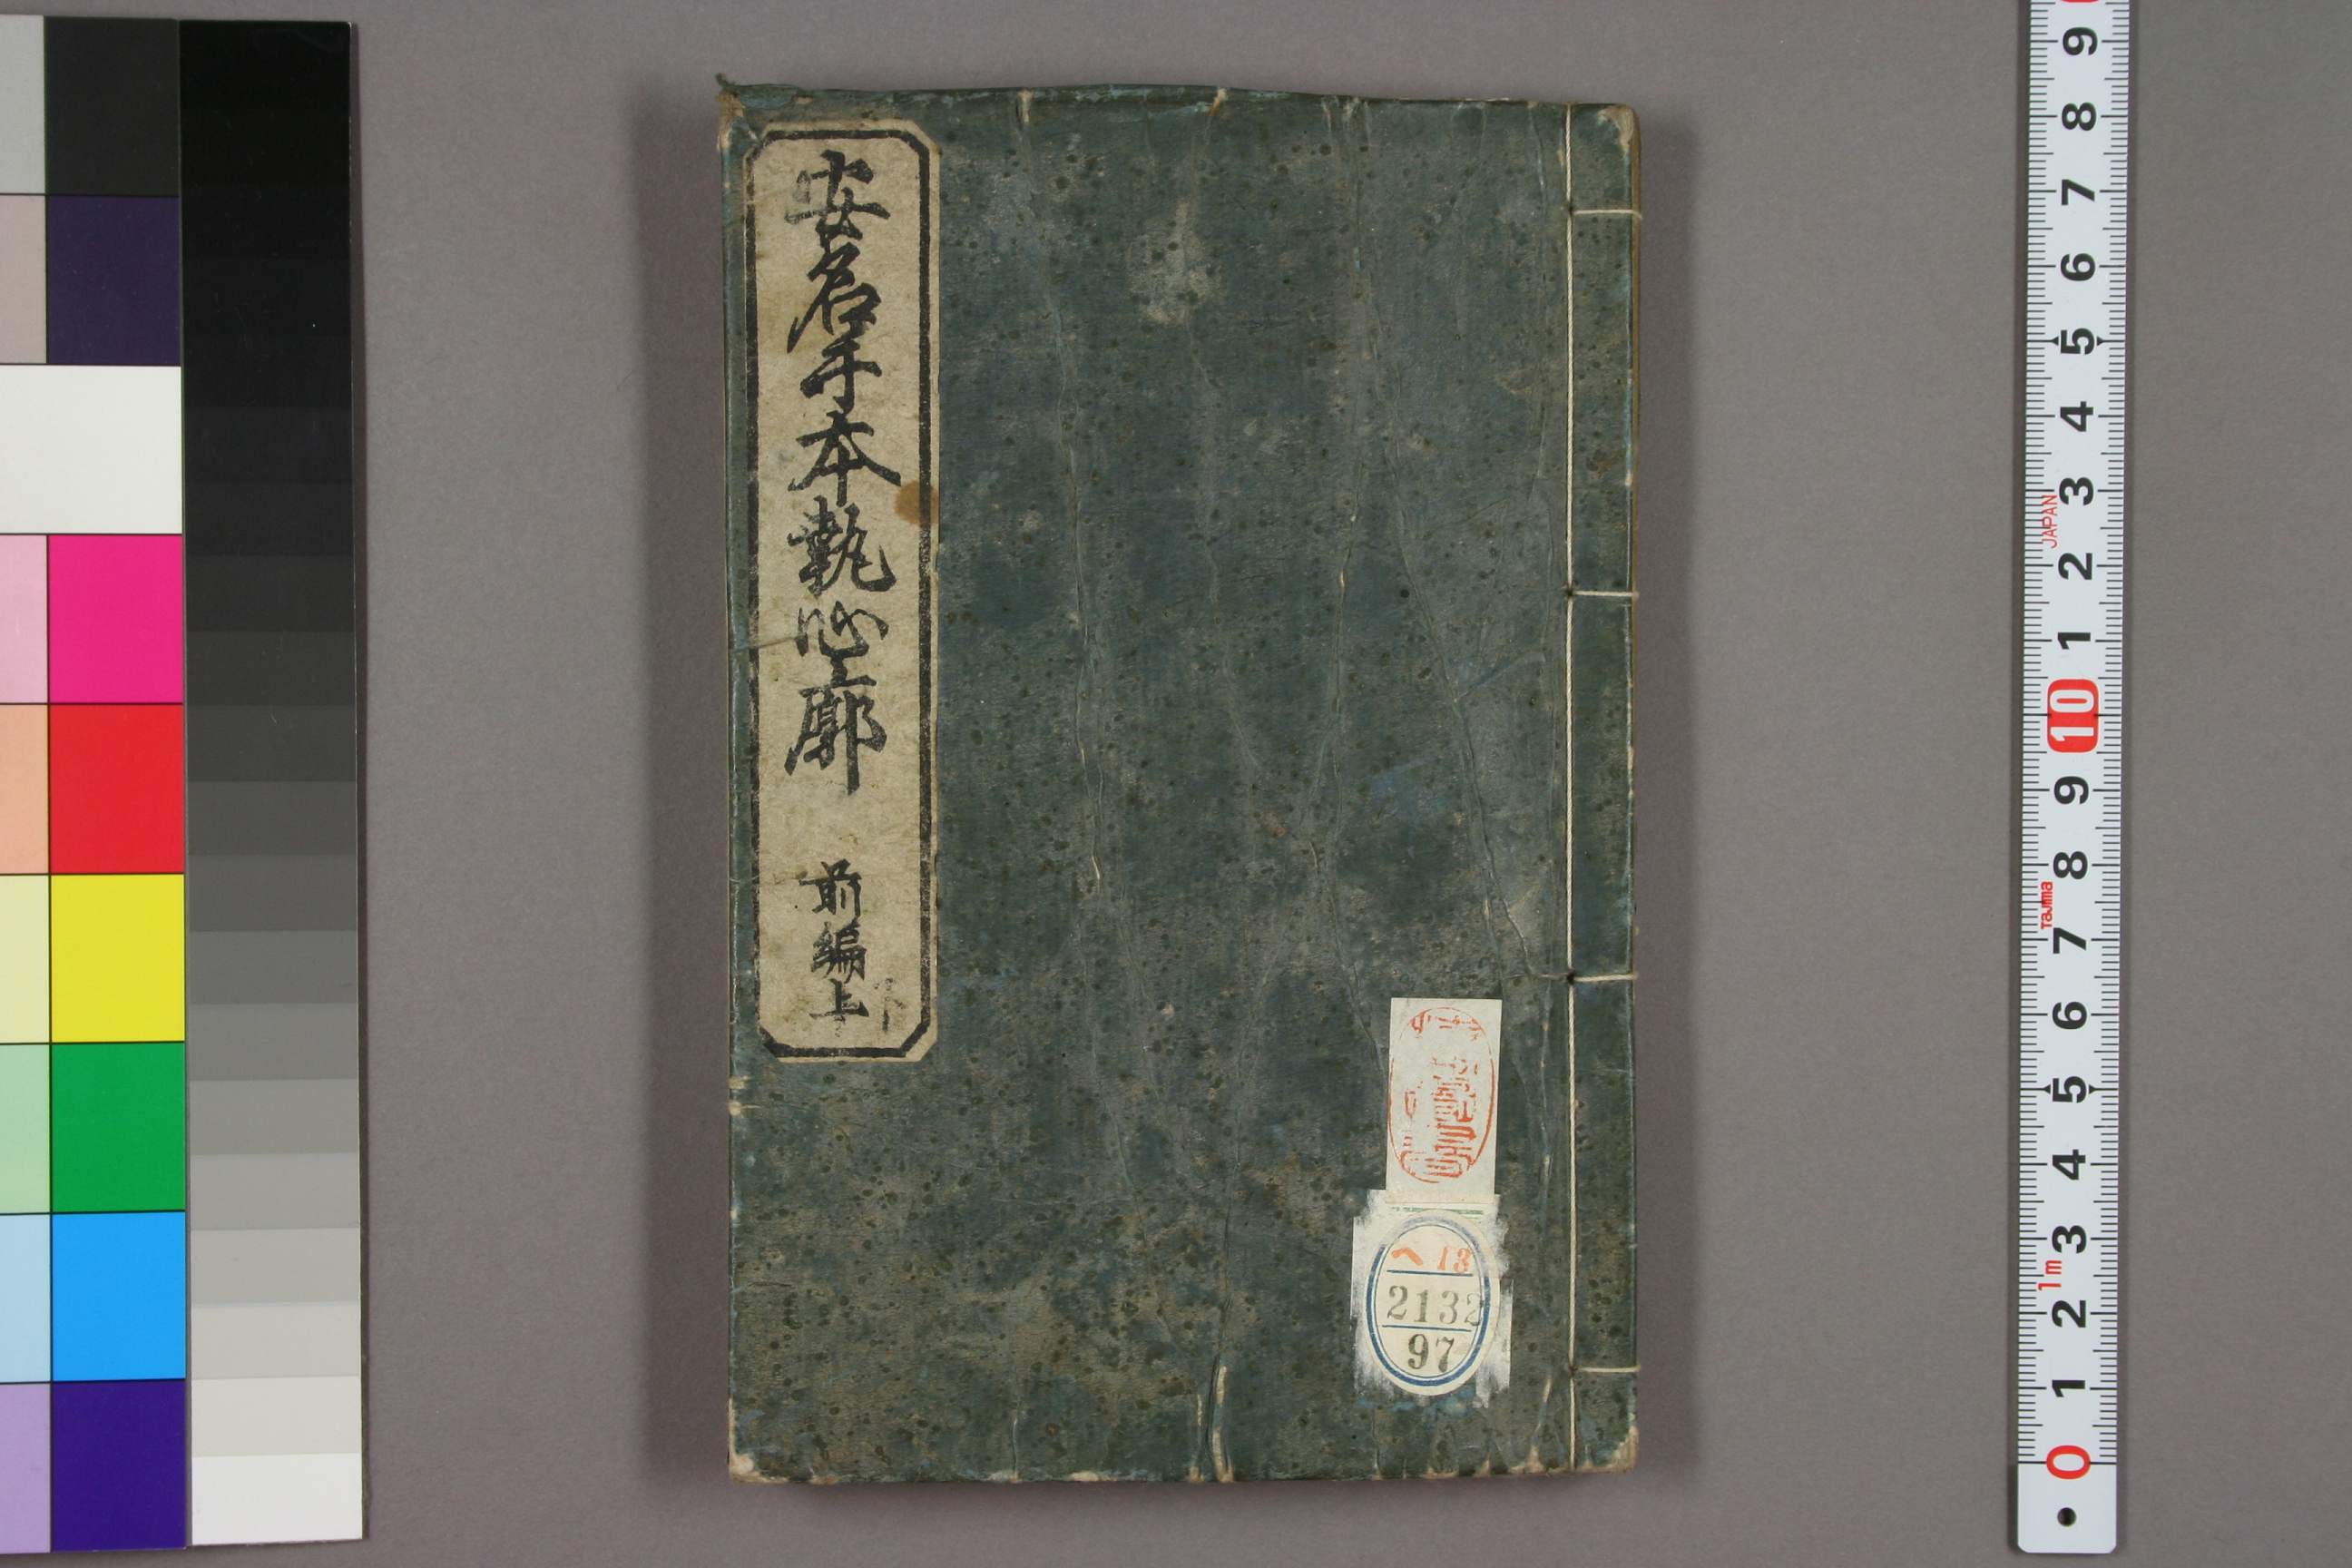 安名手本執心廓
前編上
下
ヘ 13
2132
97
9
8
7
6
5
4
3
JAPAN
2
1
10
9
8
Tajima
7
6
5
4
3
1m
2
1
0